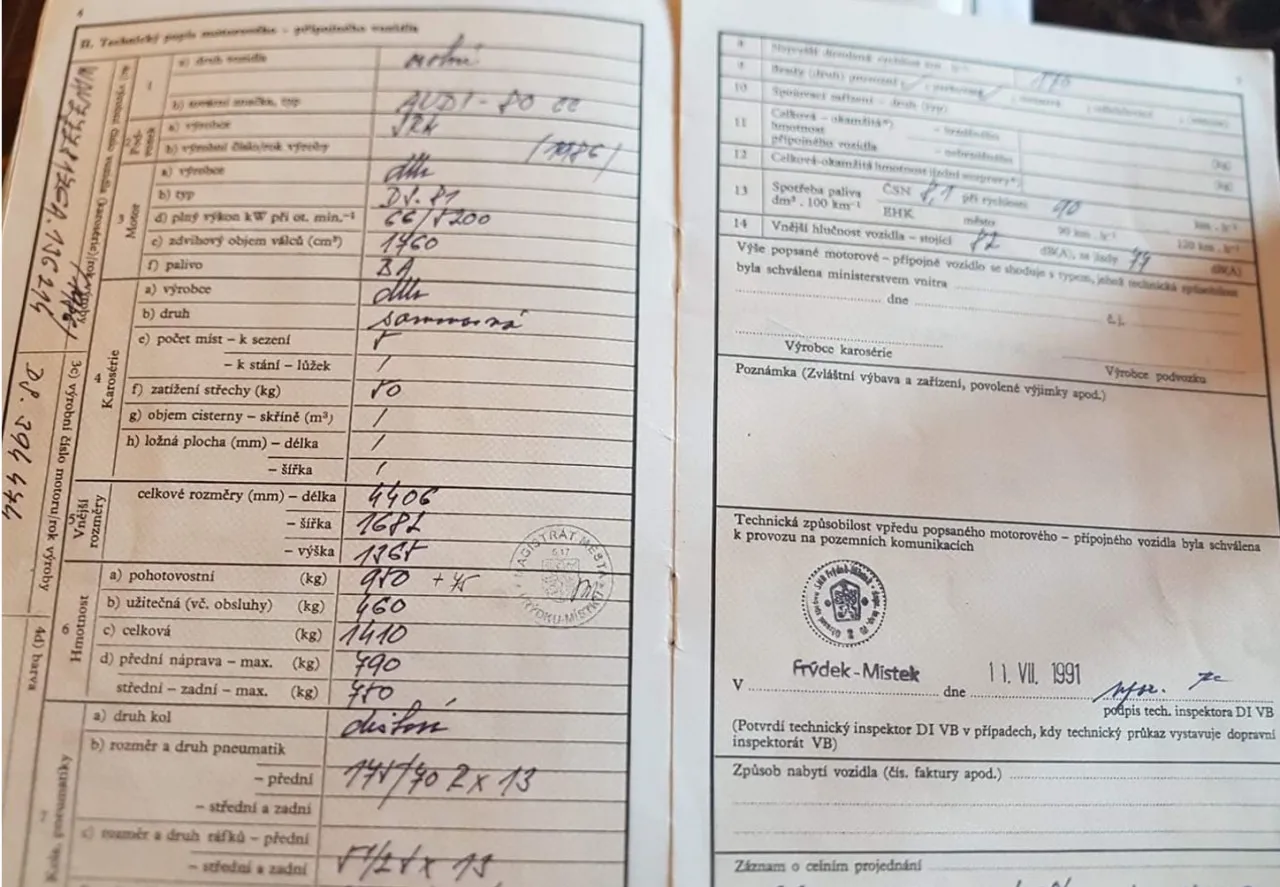 4
II. Technický popis motorového – přípojného vozidla
1
a) druh vozidla
b) tovární značka, typ AUDI - 80 CC
2 Podvozek
a) výrobce SRN
b) výrobní číslo/rok výroby /1986/
3 Motor
a) výrobce dtto
b) typ DS. 81
d) plný výkon kW při ot. min.⁻¹ 66/5200
e) zdvihový objem válců (cm³) 1760
f) palivo BA
4 Karosérie
a) výrobce dtto
b) druh
e) počet míst – k sezení 5
– k stání – lůžek /
f) zatížení střechy (kg) 50
g) objem cisterny – skříně (m³) /
h) ložná plocha (mm) – délka /
– šířka /
5 Vnější rozměry
celkové rozměry (mm) – délka 4406
– šířka 1682
– výška 1365
6 Hmotnost
a) pohotovostní (kg) 950 + 45
b) užitečná (vč. obsluhy) (kg) 460
c) celková (kg) 1410
d) přední náprava – max. (kg) 790
střední – zadní – max. (kg) 750
7 Kola, pneumatiky
a) druh kol
b) rozměr a druh pneumatik
– přední 175/70 2 x 13
– střední a zadní
c) rozměr a druh ráfků – přední
– střední a zadní 5 1/2 J x 13
3c) výrobní číslo motoru/rok výroby
DS. 394474
4d) barva
MAGISTRÁT MĚSTA
FRÝDKU-MÍSTKU
5
8 Nejvyšší
9 Brzdy (druh) provozní
10 Spojovací zařízení – druh (typ)
11 Celková – okamžitá*) – brzděného
hmotnost
přípojného vozidla – nebrzděného (kg)
12 Celková-okamžitá hmotnost jízdní soupravy*) (kg)
13 Spotřeba paliva ČSN 8,1 při rychlosti 90 km . h⁻¹
dm³ . 100 km⁻¹ EHK město 90 km . h⁻¹ 120 km . h⁻¹
14 Vnější hlučnost vozidla – stojící 82 dB(A), za jízdy 79 dB(A)
Výše popsané motorové – přípojné vozidlo se shoduje s typem, jehož technická způsobilost
byla schválena ministerstvem vnitra
dne č.j.
Výrobce karosérie Výrobce podvozku
Poznámka (Zvláštní výbava a zařízení, povolené výjimky apod.)
Technická způsobilost vpředu popsaného motorového – přípojného vozidla byla schválena
k provozu na pozemních komunikacích
V Frýdek-Místek dne 11. VII. 1991
podpis tech. inspektora DI VB
(Potvrdí technický inspektor DI VB v případech, kdy technický průkaz vystavuje dopravní
inspektorát VB)
Způsob nabytí vozidla (čís. faktury apod.)
Záznam o celním projednání